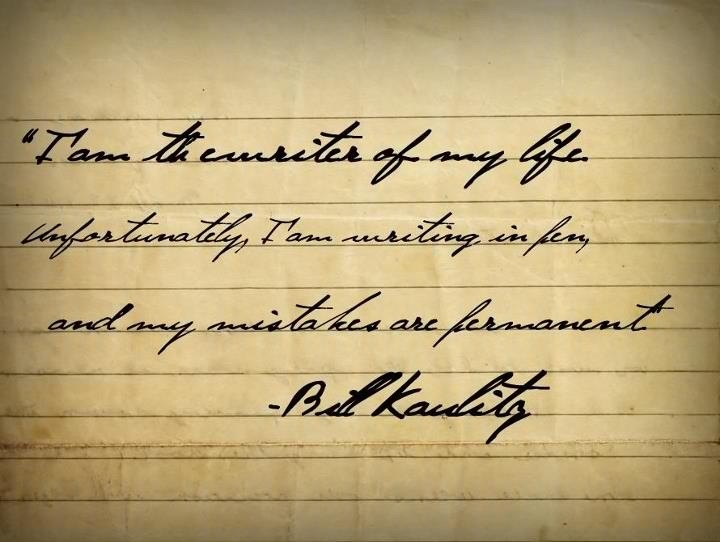 "I am the writer of my life.
Unfortunately, I am writing in pen,
and my mistakes are permanent"
-Bill Kaulitz